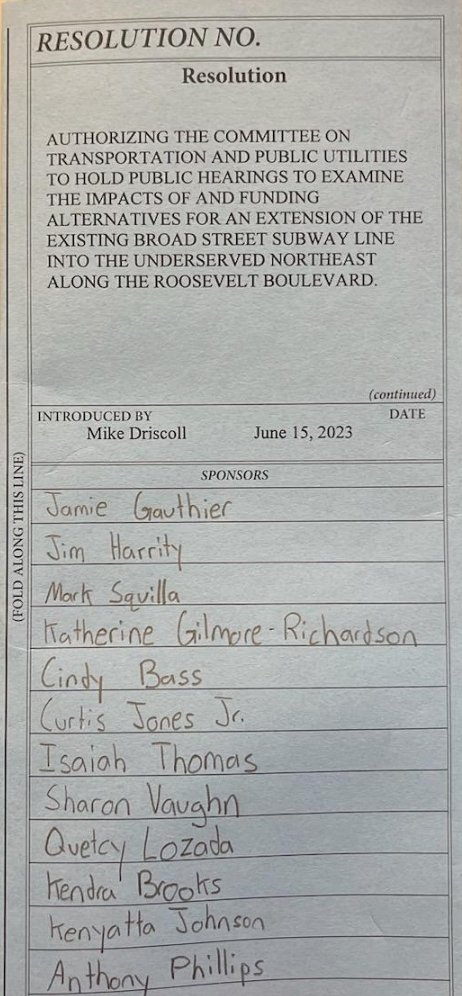 RESOLUTION NO.
Resolution
AUTHORIZING THE COMMITTEE ON
TRANSPORTATION AND PUBLIC UTILITIES
TO HOLD PUBLIC HEARINGS TO EXAMINE
THE IMPACTS OF AND FUNDING
ALTERNATIVES FOR AN EXTENSION OF THE
EXISTING BROAD STREET SUBWAY LINE
INTO THE UNDERSERVED NORTHEAST
ALONG THE ROOSEVELT BOULEVARD.
(continued)
INTRODUCED BY DATE
Mike Driscoll June 15, 2023
SPONSORS
(FOLD ALONG THIS LINE)
Jamie Gauthier
Jim Harrity
Mark Squilla
Katherine Gilmore-Richardson
Cindy Bass
Curtis Jones Jr.
Isaiah Thomas
Sharon Vaughn
Quetcy Lozada
Kendra Brooks
Kenyatta Johnson
Anthony Phillips